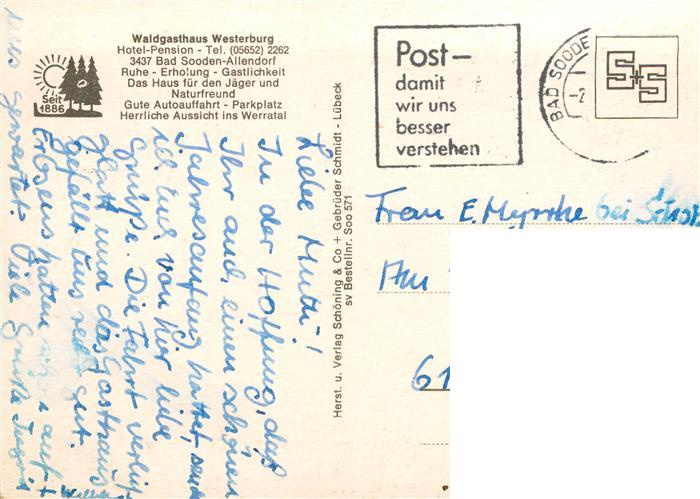 Waldgasthaus Westerburg
Hotel-Pension - Tel. (05652) 2262
3437 Bad Sooden-Allendorf
Ruhe - Erholung - Gastlichkeit
Das Haus für den Jäger und
Naturfreund
Gute Autoauffahrt - Parkplatz
Herrliche Aussicht ins Werratal
Seit
1886
Liebe Mutti!
In der Hoffnung, daß
Ihr auch einen schönen
Jahresanfang hattet, senden
ich Euch von hier liebe
Grüße. Die Fahrt verlief
glatt und das Gasthaus
gefällt uns recht gut.
Erbsens hatten auf
uns gewartet. Viele Grüße Ingrid
+ Willi
Herst. u. Verlag Schöning & Co + Gebrüder Schmidt - Lübeck
sv Bestellnr. Soo 571
Post–
damit
wir uns
besser
verstehen
BAD SOODE
-2
S+S
Frau E. Myrrhe bei
Am
61